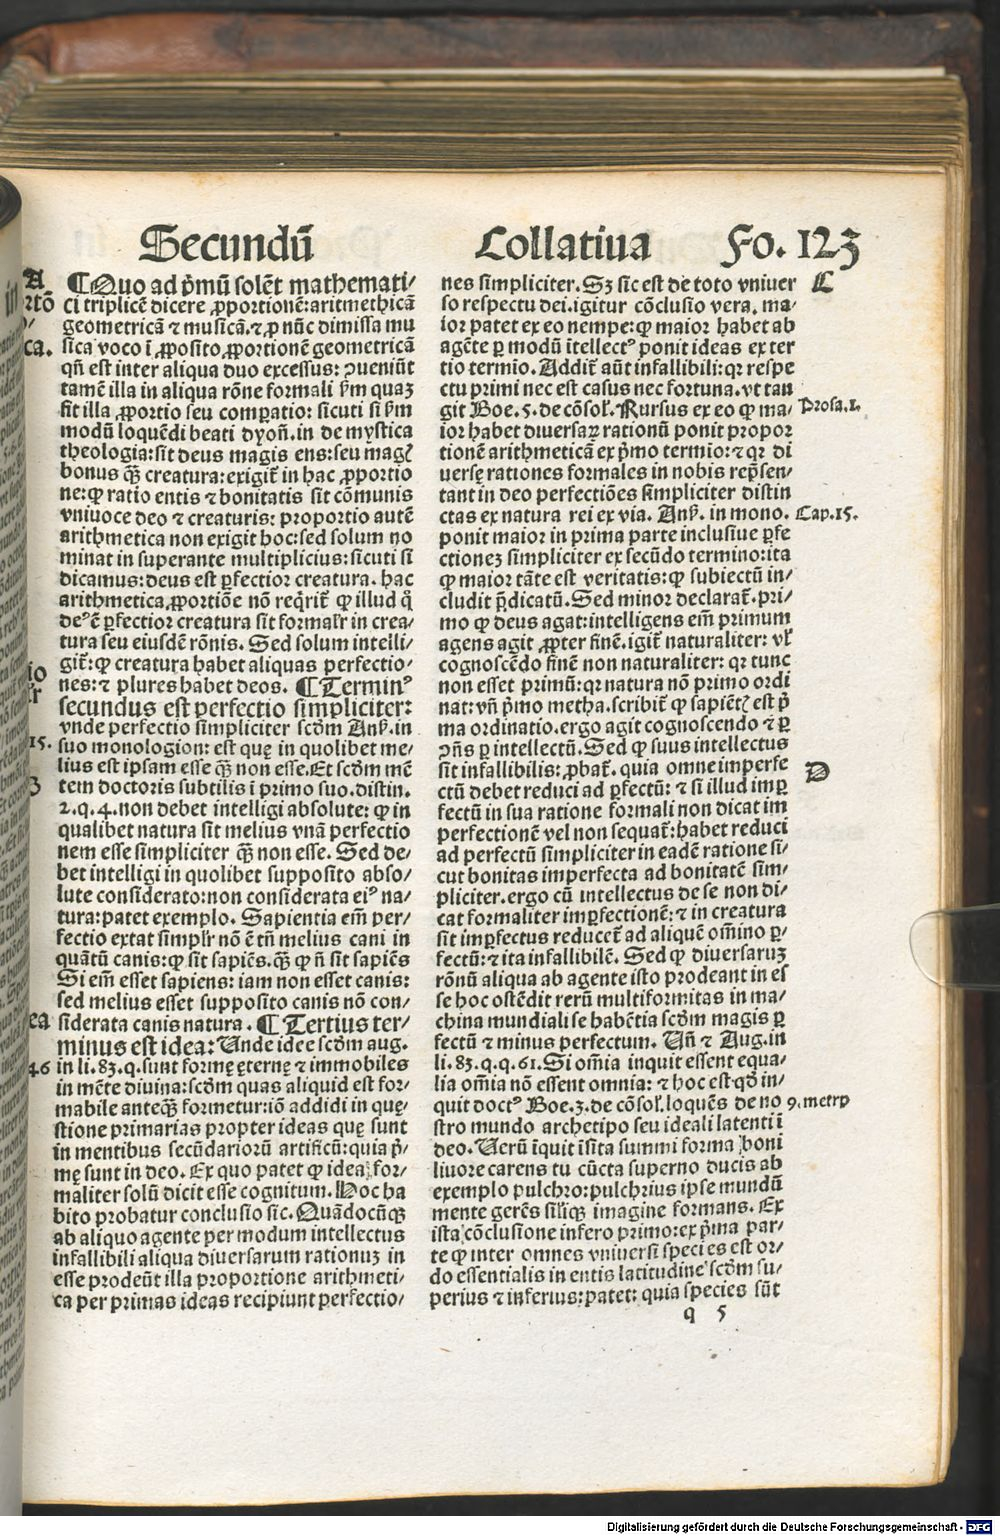 Secundū Collatiua Fo. 123
¶Quo ad pͥmū solēt mathemati⸗
ci triplicē dicere ꝓportionē:aritmethicā
geometricā ⁊ musicā.⁊ ꝓ nūc dimissa mu
sica voco ī ꝓposito ꝓportionē geometricā
qn̄ est inter aliqua duo excessus: ꝯueniūt
tamē illa in aliqua rōne formali ẜm quaꝫ
fit illa ꝓportio seu comꝑatio: sicuti si ẜm
modū loquēdi beati dyoñ.in de mystica
theologia:sit deus magis ens:seu magꝭ
bonus qͣꝫ creatura:exigit̄ in hac ꝓportio
ne:ꝙ ratio entis ⁊ bonitatis sit cōmunis
vniuoce deo ⁊ creaturis: proportio autē
arithmetica non exigit hoc:sed solum no
minat in superante multiplicius:sicuti si
dicamus:deus est ꝑfectior creatura. hac
arithmetica ꝓportiōe nō reqͥrit̄ ꝙ illud qͦ
deꝰ ē ꝑfectior creatura sit formalr̄ in crea⸗
tura seu eiusdē rōnis. Sed solum intelli⸗
git̄:ꝙ creatura habet aliquas perfectio⸗
nes:⁊ plures habet deos. ¶Terminꝰ
secundus est perfectio simpliciter:
vnde perfectio simpliciter scd̄m Anẜ.in
suo monologion: est quę in quolibet me⸗
lius est ipsam esse qͣꝫ non esse.Et scd̄m mē
tem doctoris subtilis ī primo suo.distin.
2.q.4.non debet intelligi absolute: ꝙ in
qualibet natura sit melius vnā perfectio
nem esse simpliciter qͣꝫ non esse. Sed de⸗
bet intelligi in quolibet supposito abso⸗
lute considerato:non considerata eiꝰ na⸗
tura:patet exemplo. Sapientia em̄ per⸗
fectio extat simplr̄ nō ē tn̄ melius cani in
quātū canis:ꝙ sit sapiēs.qͣꝫ ꝙ ñ sit sapiēs
Si em̄ esset sapiens: iam non esset canis:
sed melius esset supposito canis nō con⸗
siderata canis natura. ¶Tertius ter⸗
minus est idea: Unde idee scd̄m aug.
in li.83.q.sunt formę ęternę ⁊ immobiles
in mēte diuina:scd̄m quas aliquid est for⸗
mabile anteqͣꝫ formetur:iō addidi in quę⸗
stione primarias propter ideas quę sunt
in mentibus secūdariorū artificū:quia pͥ⸗
mę sunt in deo. Ex quo patet ꝙ idea for⸗
maliter solū dicit esse cognitum. Hoc ha
bito probatur conclusio sic. Quādocūqꝫ
ab aliquo agente per modum intellectus
infallibili aliqua diuersarum rationuꝫ in
esse prodeūt illa proportione arithmeti⸗
ca per primas ideas recipiunt perfectio⸗
15.
46
nes simpliciter. Sꝫ sic est de toto vniuer
so respectu dei.igitur cōclusio vera. ma⸗
ior patet ex eo nempe:ꝙ maior habet ab
agēte ꝑ modū ītellectꝰ ponit ideas ex ter
tio termio. Addit̄ aūt infallibili:qꝛ respe
ctu primi nec est casus nec fortuna.vt tan
git Boe.5.de cōsoł. Rursus ex eo ꝙ ma⸗
ior habet diuersaꝝ rationū ponit propor
tionē arithmeticā ex pͥmo termio:⁊ qꝛ di
uersę rationes formales in nobis rep̄sen⸗
tant in deo perfectiōes simpliciter distin
ctas ex natura rei ex via. Anẜ. in mono.
ponit maior in prima parte inclusiue ꝑfe
ctioneꝫ simpliciter ex secūdo termino:ita
ꝙ maior tāte est veritatis:ꝙ subiectū in⸗
cludit p̄dicatū. Sed minor declarat̄. pri⸗
mo ꝙ deus agat:intelligens em̄ primum
agens agit ꝓpter finē.igit̄ naturaliter: vł
cognoscēdo finē non naturaliter: qꝛ tunc
non esset primū:qꝛ natura nō primo ordi
nat: vn̄ pͥmo metha.scribit̄ ꝙ sapiētꝭ est pͥ
ma ordinatio.ergo agit cognoscendo ⁊ ꝑ
ꝯn̄s ꝑ intellectū. Sed ꝙ suus intellectus
sit infallibilis: ꝓbat̄. quia omne imperfe
ctū debet reduci ad ꝑfectū: ⁊ si illud imꝑ
fectū in sua ratione formali non dicat im
perfectionē vel non sequat̄:habet reduci
ad perfectū simpliciter in eadē ratione si⸗
cut bonitas imperfecta ad bonitatē sim⸗
pliciter.ergo cū intellectus de se non di⸗
cat formaliter imꝑfectionē:⁊ in creatura
sit imꝑfectus reducet̄ ad aliquē om̄ino ꝑ⸗
fectū:⁊ ita infallibilē. Sed ꝙ diuersaruꝫ
rōnū aliqua ab agente isto prodeant in es
se hoc ostēdit rerū multiformitas in ma⸗
china mundiali se habētia scd̄m magis ꝑ
fectū ⁊ minus perfectum. Un̄ ⁊ Aug.in
li.83.q.q.61.Si om̄ia inquit essent equa⸗
lia om̄ia nō essent omnia: ⁊ hoc est qd̄ in⸗
quit doctꝰ Boe.3.de cōsoł.loquēs de no
stro mundo archetipo seu ideali latenti ī
deo. Uerū īquit īsita summi forma boni
liuore carens tu cūcta superno ducis ab
exemplo pulchro:pulchrius ipse mundū
mente gerēs silīqꝫ imagine formans. Ex
ista cōclusione infero primo:ex pͥma par⸗
te ꝙ inter omnes vniuersi species est or⸗
do essentialis in entis latitudine scd̄m su⸗
perius ⁊ inferius:patet: quia species sūt
C
Prosa.1.
Cap.15.
D
9.metro
q 5
Digitalisierung gefördert durch die Deutsche Forschungsgemeinschaft - DFG